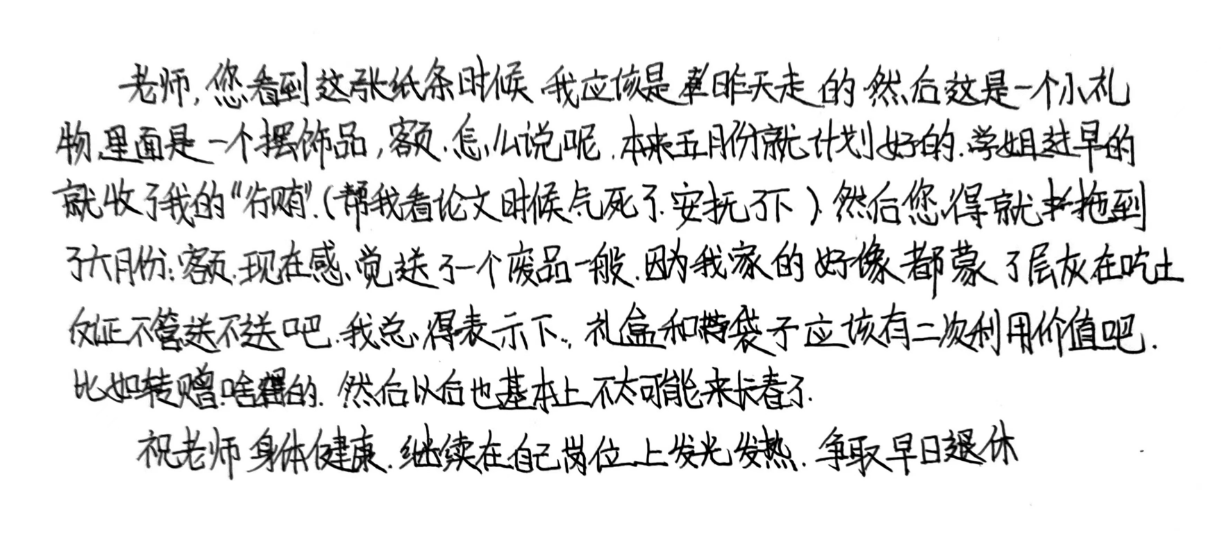 老师,您看到这张纸条时候,我应该是昨天走的.然后这是一个小礼
物,里面是一个摆饰品,额.怎么说呢.本来五月份就计划好的.学姐挺早的
就收了我的“行贿”.(帮我看论文时候气死了.安抚下).然后您.得就拖到
了六月份.额.现在感觉送了一个废品一般.因为我家的好像都蒙了层灰在吃土
反正不管送不送吧.我总得表示下.礼盒和袋子应该有二次利用价值吧.
比如转赠啥的.然后以后也基本上不太可能来长春了.
祝老师身体健康.继续在自己岗位上发光发热.争取早日退休